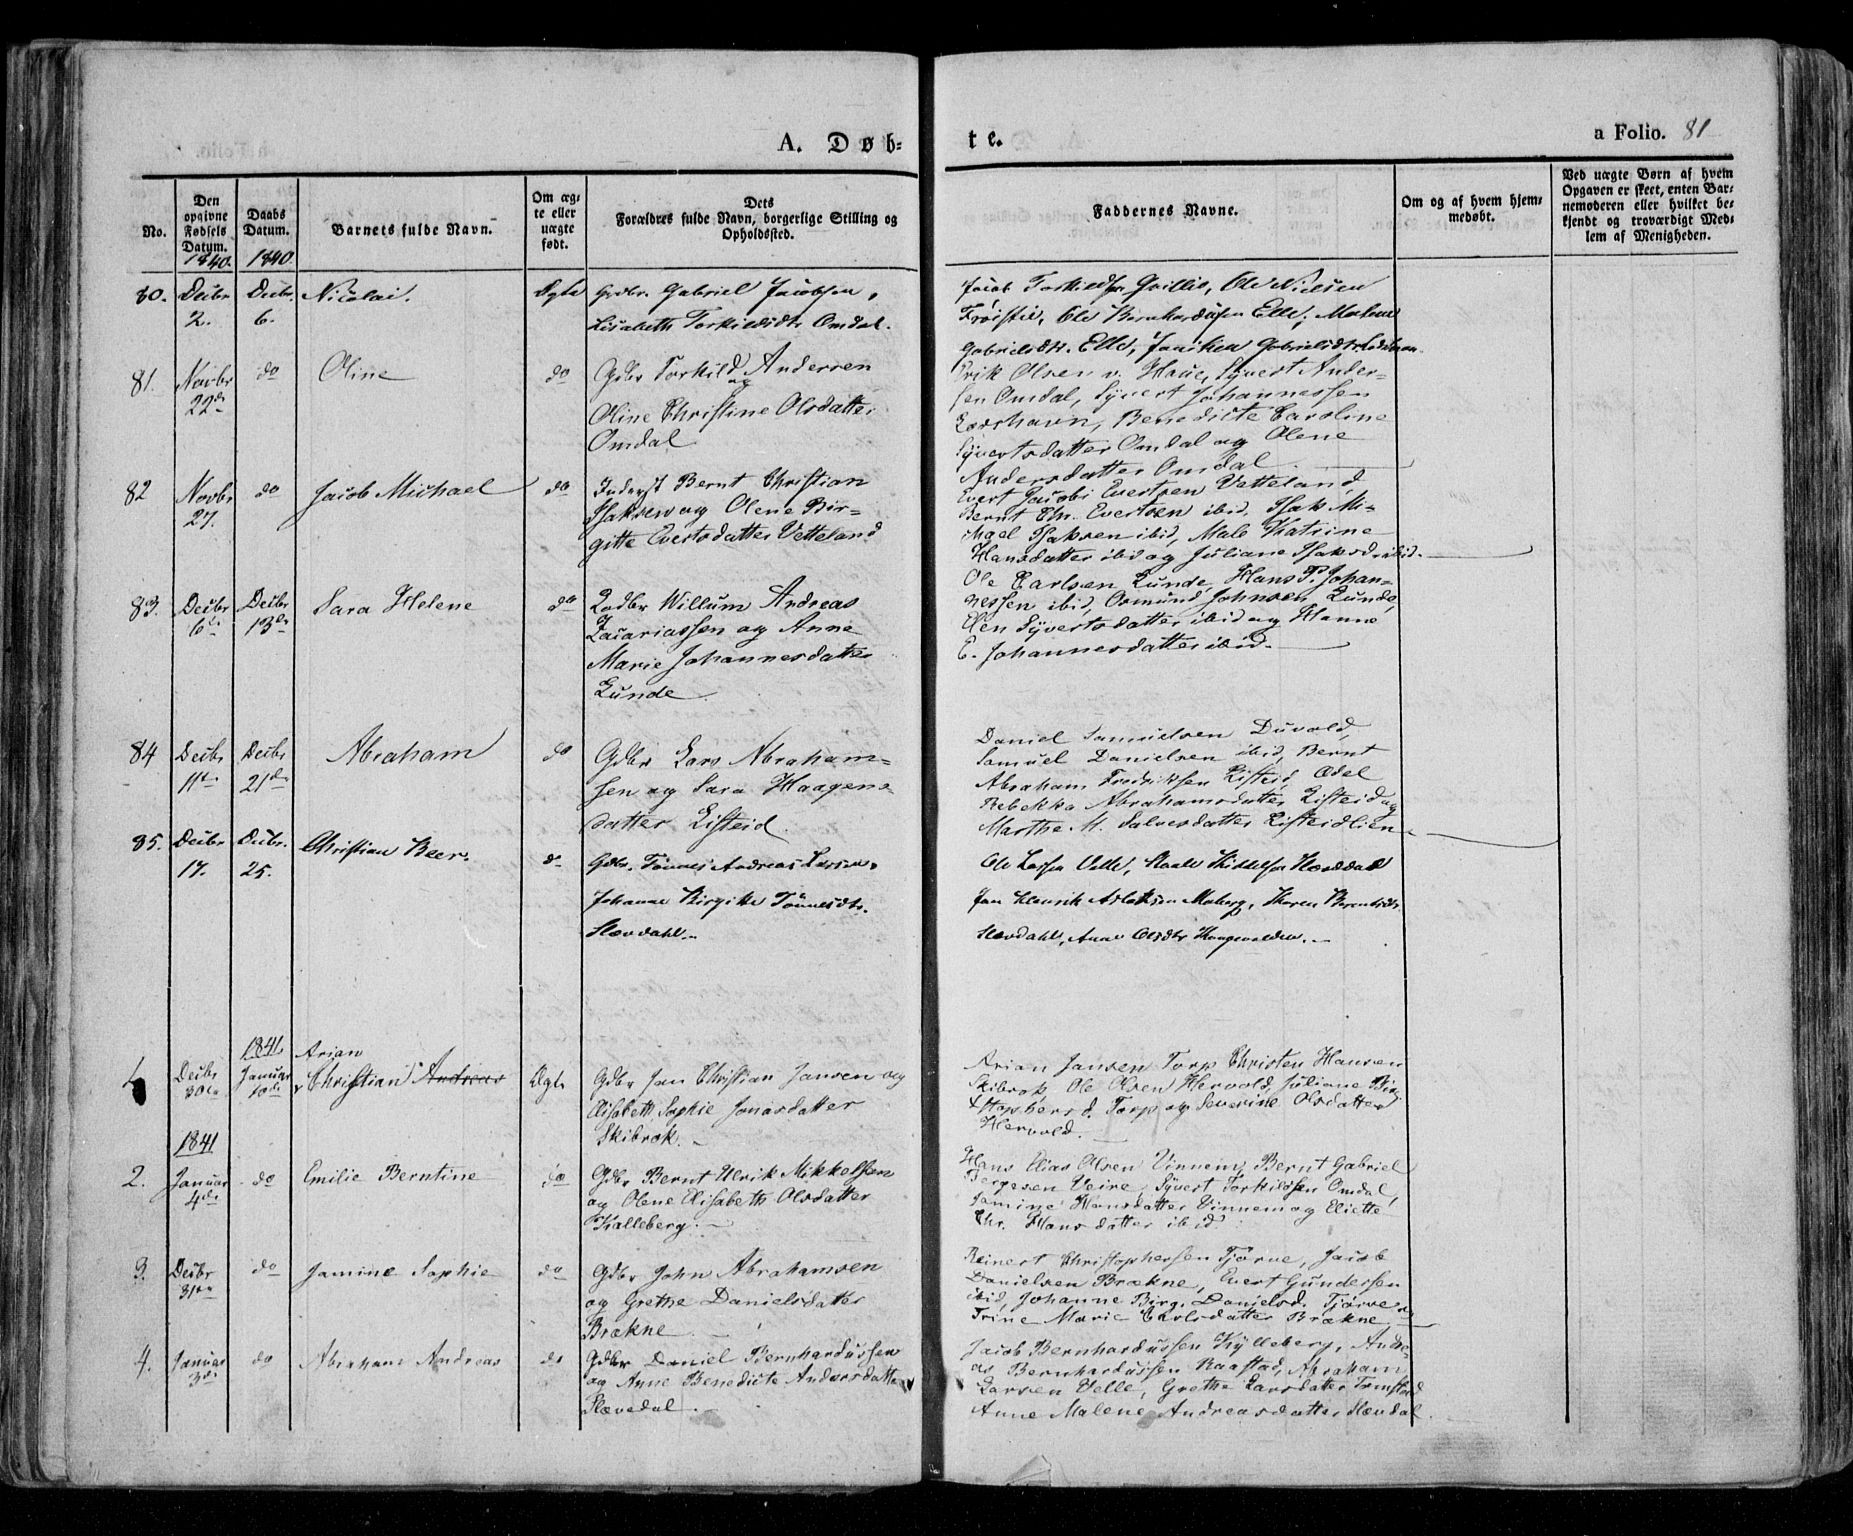 A. Døb-
te.
a Folio. 81
No.
Den opgivne Fødsels Datum.
1840.
Daabs Datum.
1840.
Barnets fulde Navn.
Om ægte eller uægte født.
Dets
Forældres fulde Navn, borgerlige Stilling og
Opholdssted.
Faddernes Navne.
Om og af hvem hjem-
medøbt.
Ved uægte Børn af hvem
Opgaven er skeet, enten Bar-
nemoderen eller hvilket be-
kjendt og troværdigt Med-
lem af Menigheden.
80. Decbr 2. Decbr. 6. Nicolai. Ægte
Grdbr. Gabriel Jacobsen,
Lisabeth Torkildsdtr Omdal.
Jacob Torkildsen Qvillis, Ole Nielsen
Frøistie, Ole Bernhardusen Elle, Malene
Gabrielsdtr. Elle, Janiken Gabrielsdtr
81. Novbr 22de do Oline do
Gdbr Torkild Andersen
og
Oline Christine Olsdatter
Omdal
Erik Olsen v. Haue, Syvert Ander-
sen Omdal, Syvert Johannessen
Korshavn, Benedicte Caroline
Syvertsdatter Omdal og Olene
Andersdatter Omdal.
82 Novbr 27. do Jacob Michael do
Inderst Bernt Christian
Isaksen og Olene Bir-
gitte Evertsdatter Vetteland
Evert Jacobi Evertsen Vetteland
Bernt Chr. Evertsen ibid, Isak Mi-
chael Isaksen ibid, Male Katrine
Hansdatter ibid og Juliane Isaksd. ibid.
83. Decbr 6te Decbr 13de Sara Helene do
Lodbr Willum Andreas
Zacariassen og Anne
Marie Johannesdatter
Lunde
Ole Carlsen Lunde, Hans P. Johan-
nessen ibid, Osmund Johnsen Lunde,
Elen Syvertsdatter ibid og Hanne
E. Johannesdatter ibid.
84 Decbr 11te Decbr 21de Abraham do
Gdbr Lars Abraham-
sen og Sara Haagens-
datter Listeid.
Daniel Samuelsen Duvold,
Samuel Danielsen ibid, Bernt
Abraham Fredriksen Listeid, Odel
Rebekka Abrahamsdatter Listeid og
Marthe M. Salvesdatter Listeidlien
85. Decbr 17. Decbr. 25. Christian Beer. do
Gdbr. Tønnes Andreas Larsen,
Johanne Birgitte Tønnesdtr.
Slævdahl.
Ole Larsen Velle, Staale
Jan Henrik Aslaksen Moberg, Karen Berentsdtr
Slævdahl, Anne Olsdtr
1841
Arian
Decbr 30te Januar 10de Christian Andreas Ægte
Gdbr Jan Christian Jansen og
Elisabeth Sophie Jonasdatter
Skibrok.
Arian Jansen Torp, Christen Hansen
Skibrok, Ole Olsen Hervold, Juliane Birg
Stophersd. Torp og Severine Olsdatter
Hervold.
1841
2. Januar 4de do Emilie Berntine do
Gdbr Bernt Ulrik Mikkelsen
og Olene Elisabeth Olsdatter
Kalleberg.
Hans Elias Olsen Vinnem, Bernt Gabriel
Bergesen Veire, Syvert Torkildsen Omdal,
Jamine Hansdatter Vinnem og Eliette
Chr. Hansdatter ibid.
3. Decbr 31te do Jamine Sophie do
Gdbr John Abrahamsen
og Grethe Danielsdatter
Brækne.
Reinert Christophersen Tjørve, Jacob
Danielsen Brækne, Evert Gundersen
ibid, Johanne Birg. Danielsd. Tjørve og
Trine Marie Carlsdatter Brækne
4. Januar 3de do Abraham Andreas do
Gdbr Daniel Bernhardussen
og Anne Benedicte Andersdatter
Slævedal.
Jacob Bernhardussen Kylleberg, Andre-
as Bernhardussen Raastad, Abraham
Larsen Velle, Grethe Larsdatter
Anne Malene Andreasdatter Slævdal